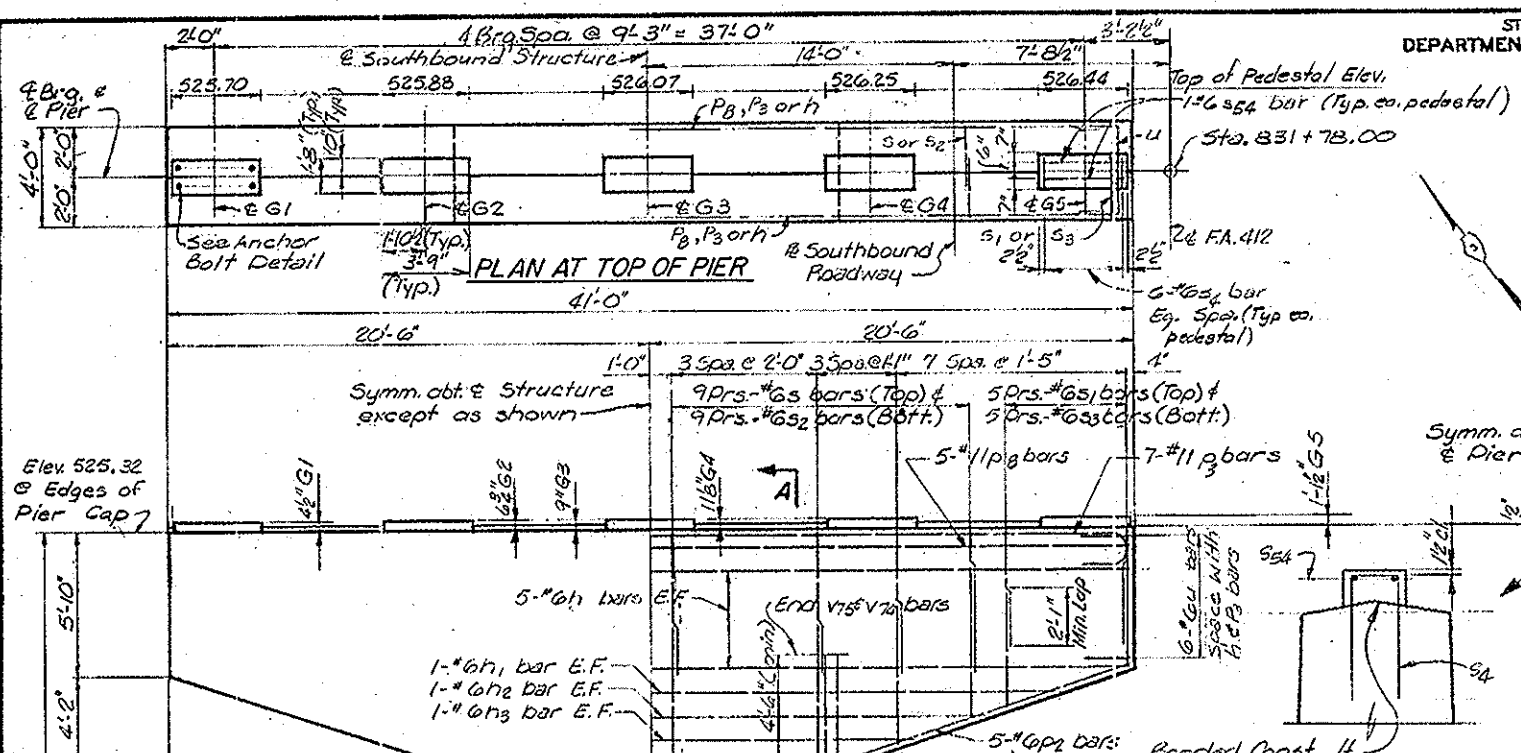 ST
DEPARTMEN
2'-0"
4 Brg. Spa. @ 9'-3" = 37'-0"
3'-2½"
℄ Southbound Structure
14'-0"
7'-8½"
525.70
525.88
526.07
526.25
526.44
Top of Pedestal Elev.
1-#6 s54 bar (Typ. ea. pedestal)
℄ Brg. &
℄ Pier
P8, P3 or h
s or s2
u
Sta. 831 + 78.00
4'-0"
2'-0"
2'-0"
1'-8" (Typ.)
10" (Typ.)
1'-6"
7"
7"
℄ G1
℄ G2
℄ G3
℄ G4
℄ G5
See Anchor
Bolt Detail
1'-10½" (Typ.)
3'-9"
(Typ.)
P8, P3 or h
℄ Southbound
Roadway
s1 or s3
2½"
2½"
℄ F.A. 412
PLAN AT TOP OF PIER
41'-0"
6-#6s4 bar
Eq. Spa. (Typ ea.
pedestal)
20'-6"
20'-6"
1'-0"
3 Spa. @ 2'-0"
3 Spa @ 1'-1"
7 Spa. @ 1'-5"
4"
Symm. abt. ℄ Structure
except as shown
9 Prs.-#6s bars (Top) &
9 Prs.-#6s2 bars (Bott.)
5 Prs.-#6s1 bars (Top) &
5 Prs.-#6s3 bars (Bott.)
Symm. a
℄ Pier
Elev. 525.32
@ Edges of
Pier Cap
4½" G1
6¾" G2
9" G3
11⅛" G4
A
5-#11p8 bars
7-#11 p3 bars
1'-1½" G5
12"
1½" cl.
s54
5'-10"
4'-2"
5-#6h bars E.F.
End v75 & v76 bars
2'-1"
Min. Lap
6-#6u bars
Space with
h & P3 bars
s4
1-#6h1 bar E.F.
1-#6h2 bar E.F.
1-#6h3 bar E.F.
4'-6" (min)
5-#6p2 bars
Bonded Const. Jt.